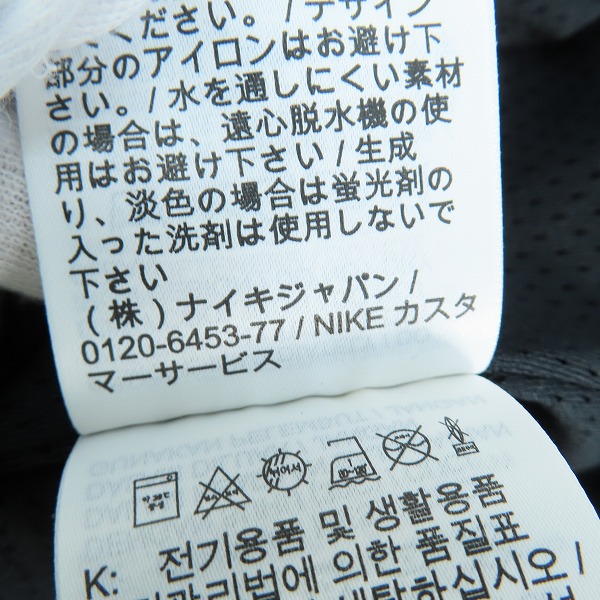 ください。/ デザイン
部分のアイロンはお避け下
さい。/ 水を通しにくい素材
の場合は、遠心脱水機の使
用はお避け下さい / 生成
り、淡色の場合は蛍光剤の
入った洗剤は使用しないで
下さい
(株) ナイキジャパン /
0120-6453-77 / NIKE カスタ
マーサービス
K: 전기용품 및 생활용품
관리법에 의한 품질표
세탁하십시오 /